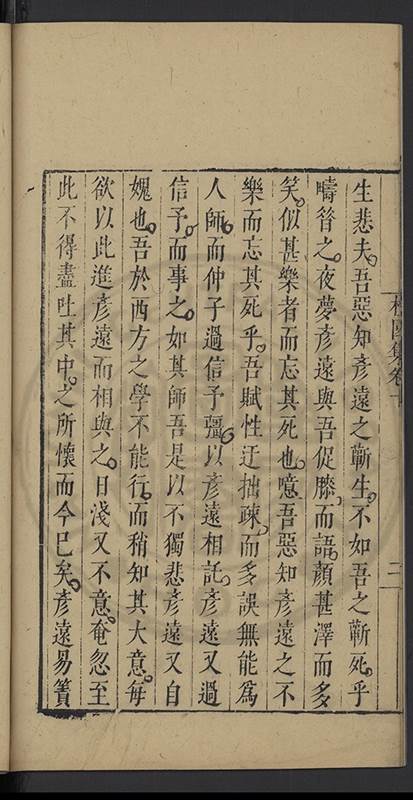 生悲夫吾惡知彥遠之蘄生不如吾之蘄死乎
疇昝之夜夢彥遠與吾促膝而語顏甚澤而多
笑似甚樂者而忘其死也噫吾惡知彥遠之不
樂而忘其死乎吾賦性迂拙疎而多誤無能為
人師而仲子過信予彊以彥遠相託彥遠又過
信予而事之如其師吾是以不獨悲彥遠又自
媿也吾於西方之學不能行而稍知其大意每
欲以此進彥遠而相與之日淺又不意奄忽至
此不得盡吐其中之所懷而今已矣彥遠易簀